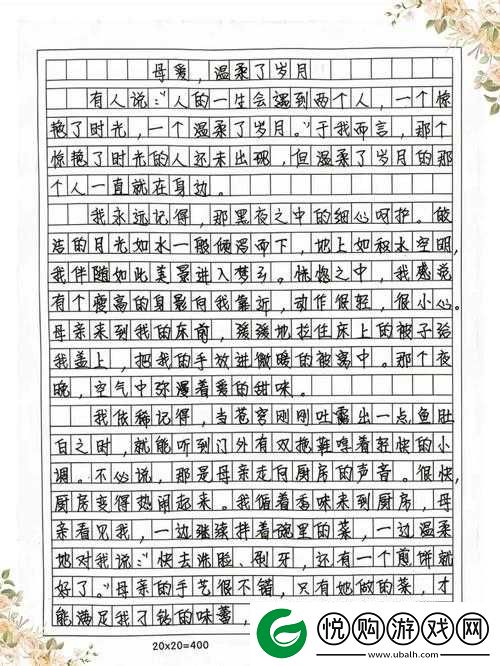 母爱，温柔了岁月
有人说："人的一生会遇到两个人，一个惊
艳了时光，一个温柔了岁月。"于我而言，那个
惊艳了时光的人还未出现，但温柔了岁月的那
个人一直就在身边。
我永远记得，那黑夜之中的细心呵护。皎
洁的月光如水一般倾泻而下，地上如积水空明，
我伴随如此美景进入梦乡。恍惚之中，我感觉
有个瘦高的身影向我靠近，动作很轻，很小心。
母亲来到我的床前，缓缓地拉住床上的被子给
我盖上，把我的手放进微暖的被窝中。那个夜
晚，空气中弥漫着爱的甜味。
我依稀记得，当苍穹刚刚吐露出一点鱼肚
白之时，就能听到门外有双拖鞋哼着轻快的小
调。不必说，那是母亲走向厨房的声音。很快，
厨房变得热闹起来。我循着香味来到厨房，母
亲看见我，一边继续拌着碗里的菜，一边温柔
地对我说："快去洗脸、刷牙，还有一个煎饼就
好了。"母亲的手艺很不错，只有她做的菜，才
能满足我刁钻的味蕾，
20×20=400
悦购游戏网
www.ubalh.com